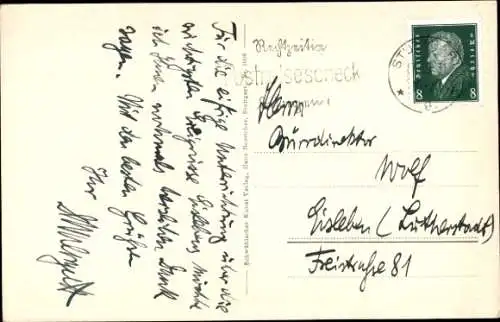 Für die eifrige Unterrichtung über die
wichtigsten Ereignisse Eislebens möchte
ich Ihnen nochmals herzlichen Dank
sagen. Mit den besten Grüßen
Ihr
Schwäbischer Kunst Verlag, Hans Boettcher, Stuttgart
Rechtzeitig
Postreisescheck
ST
Deutsches Reich
8 8
Herrn
Bürodirektor
Wolf
Eisleben (Lutherstadt)
Freistraße 81